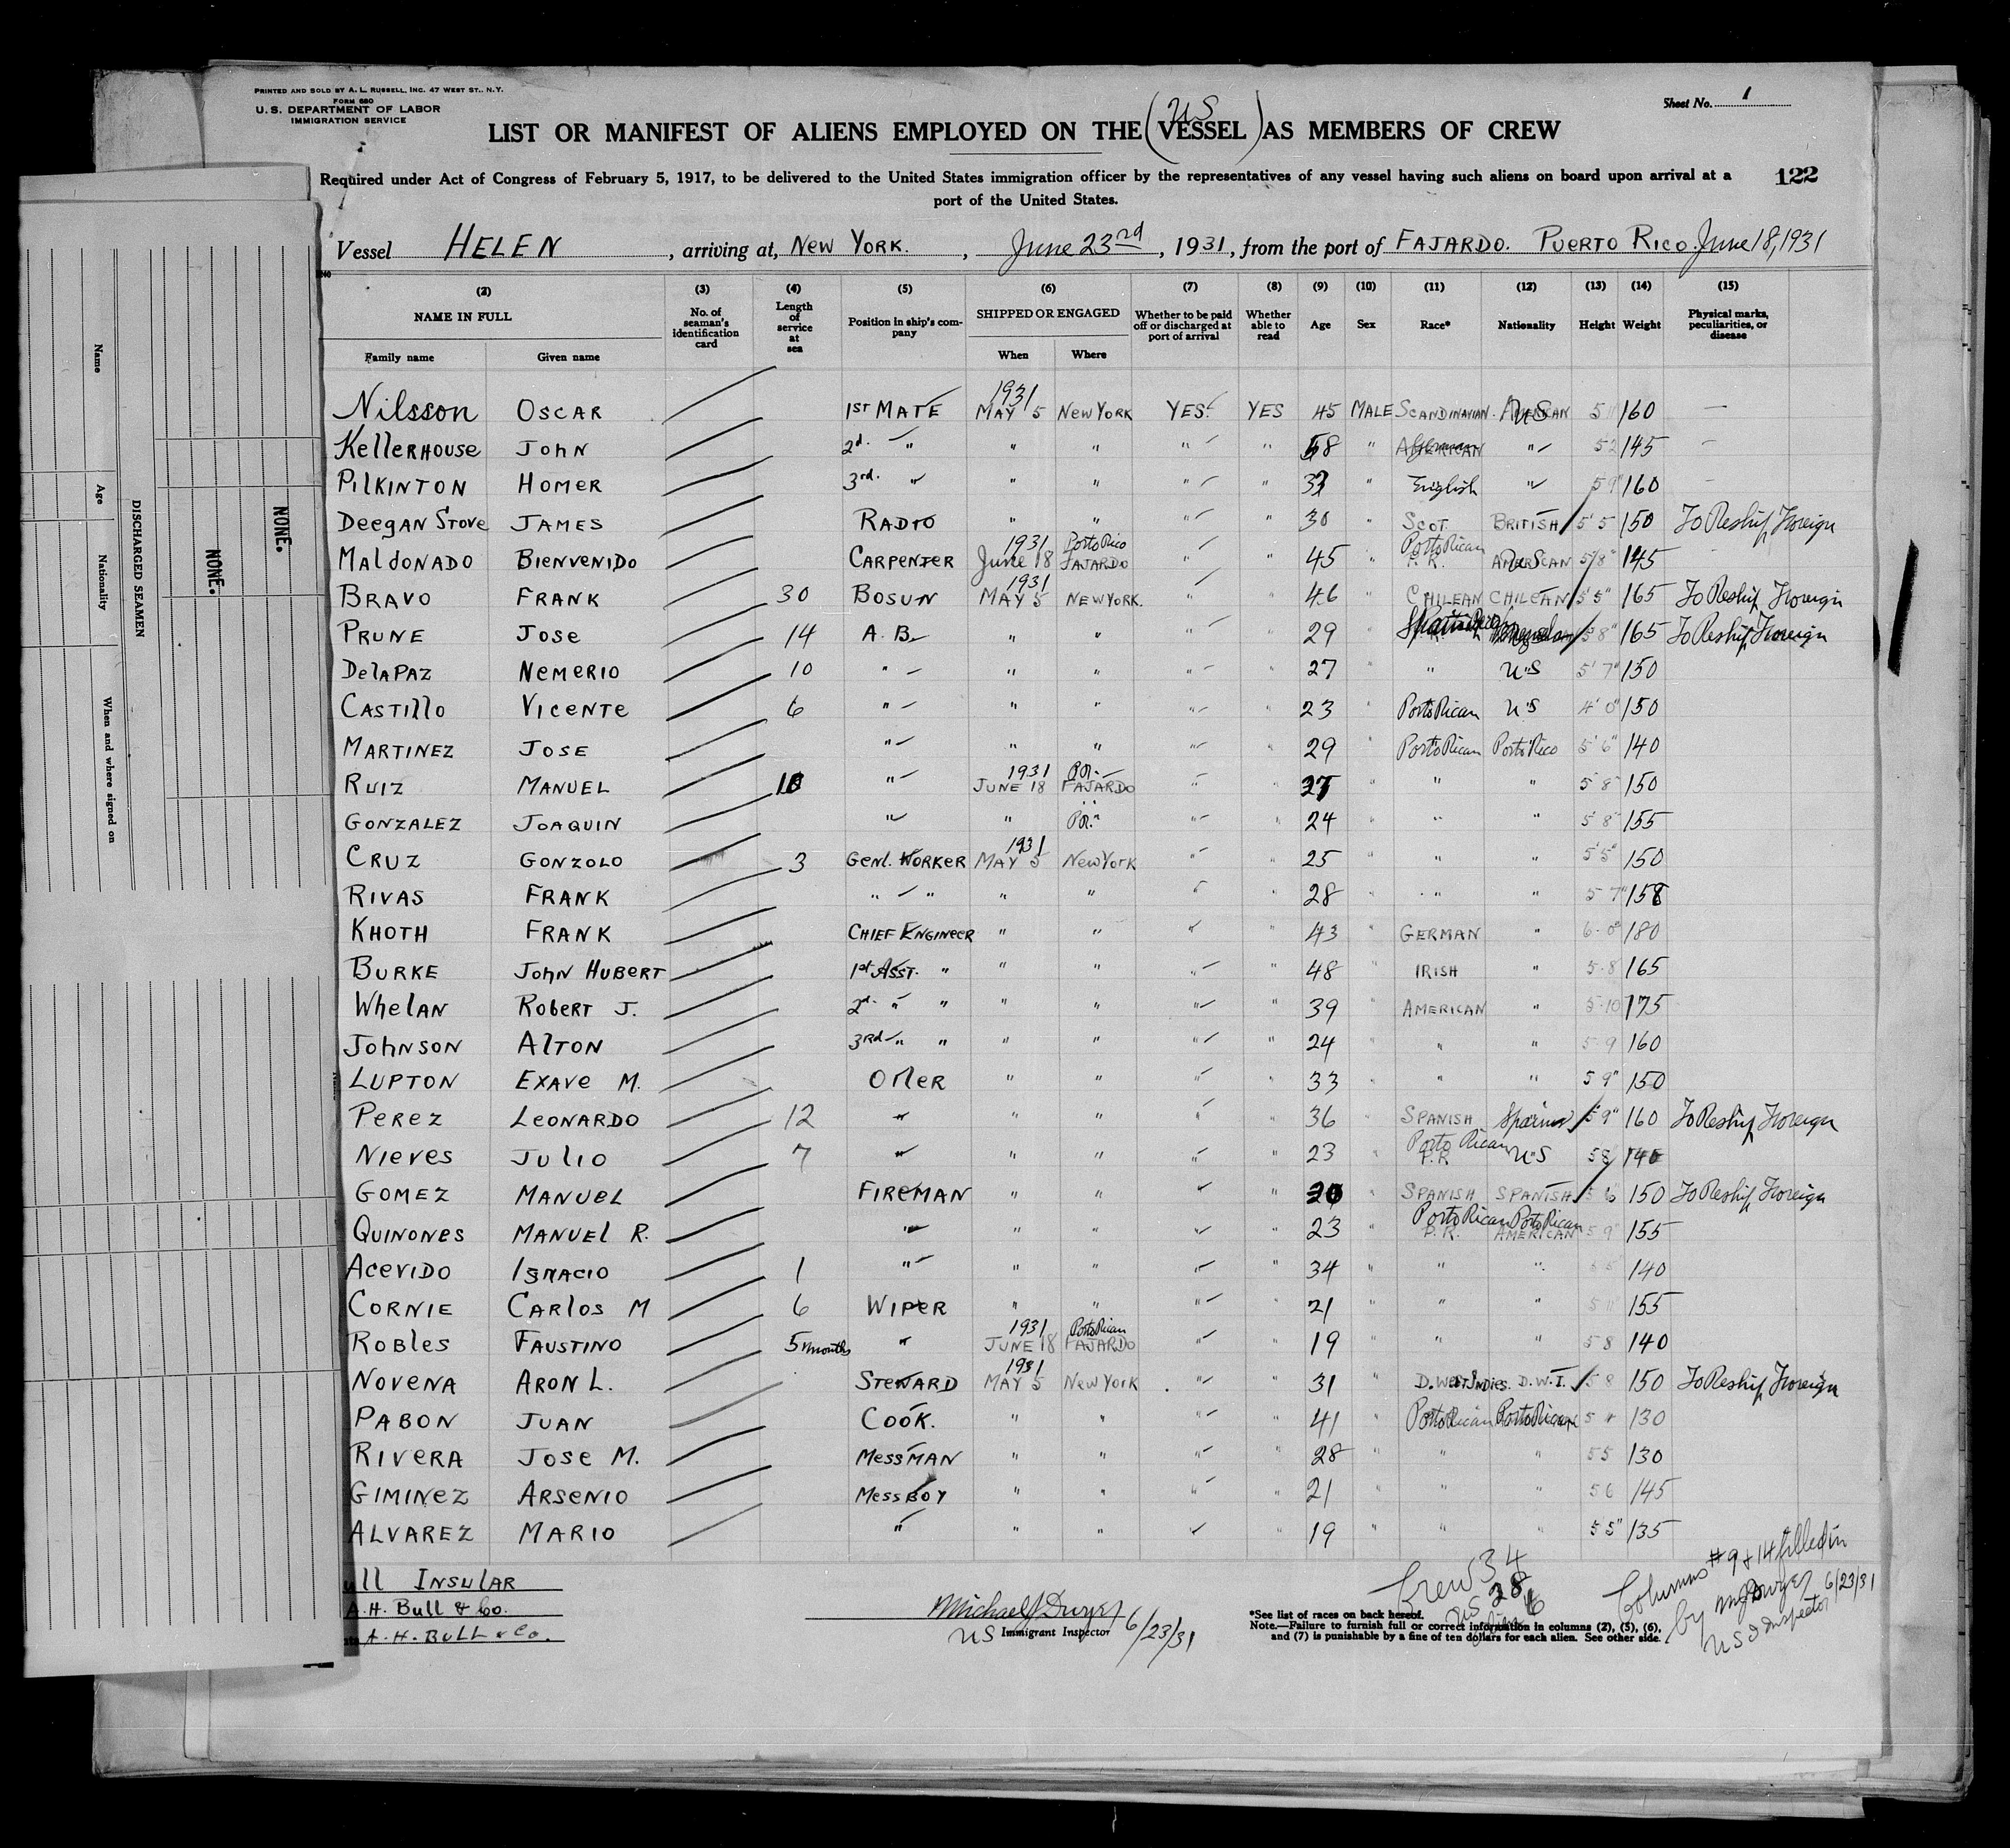 PRINTED AND SOLD BY A. L. RUSSELL, INC. 47 WEST ST., N.Y.
FORM 680
U. S. DEPARTMENT OF LABOR
IMMIGRATION SERVICE
Sheet No. 1
US
LIST OR MANIFEST OF ALIENS EMPLOYED ON THE (VESSEL) AS MEMBERS OF CREW
Required under Act of Congress of February 5, 1917, to be delivered to the United States immigration officer by the representatives of any vessel having such aliens on board upon arrival at a
port of the United States.
122
Vessel HELEN, arriving at, NEW YORK., June 23rd, 1931, from the port of FAJARDO. PUERTO RICO. June 18, 1931
(2) (3) (4) (5) (6) (7) (8) (9) (10) (11) (12) (13) (14) (15)
NAME IN FULL No. of seaman's identification card Length of service at sea Position in ship's company SHIPPED OR ENGAGED Whether to be paid off or discharged at port of arrival Whether able to read Age Sex Race* Nationality Height Weight Physical marks, peculiarities, or disease
Family name Given name When Where
1931
Nilsson OSCAR 1ST MATE MAY 5 NEW YORK YES. YES 45 MALE SCANDINAVIAN. US 160 —
KELLERHOUSE JOHN 2d. " " " " " 58 " " 5 2 145 —
PILKINTON HOMER 3rd. " " " " " 33 " English " 5 9" 160 —
DEEGAN STOVE JAMES RADIO " " " " 30 " SCOT BRITISH 5' 5 150 To Reship Foreign
1931 Porto Rico Porto Rican
MALDONADO BIENVENIDO CARPENTER June 18 FAJARDO " " 45 " P.R. US 5/8" 145
1931
BRAVO FRANK 30 BOSUN MAY 5 NEW YORK. " " 46 " CHILEAN CHILEAN 5' 5" 165 To Reship Foreign
PRUNE JOSE 14 A. B. " " " " 29 5 8" 165 To Reship Foreign
DELAPAZ NEMERIO 10 " " " " " 27 " " U"S 5' 7" 150
CASTILLO VICENTE 6 " " " " " 23 " Porto Rican U"S 4' 0" 150
MARTINEZ JOSE " " " " " 29 " Porto Rican Porto Rico 5' 6" 140
1931 P.R.
RUIZ MANUEL 10 " JUNE 18 FAJARDO " " 27 " " " 5 8 150
GONZALEZ JOAQUIN " " P.R. " " 24 " " " 5 8" 155
1931
CRUZ GONZOLO 3 GENL. WORKER MAY 5 NEW YORK " " 25 " " " 5' 5" 150
RIVAS FRANK " " " " " " 28 " " " 5 7" 158
KHOTH FRANK CHIEF ENGINEER " " " 43 " GERMAN " 6-0" 180
BURKE JOHN HUBERT 1st ASST. " " " " " 48 " IRISH " 5-8 165
WHELAN ROBERT J. 2d. " " " " " " 39 " AMERICAN " 5-10 175
JOHNSON ALTON 3rd " " " " " " 24 " " " 5-9 160
LUPTON EXAVE M. OILER " " " " 33 " " " 5 9" 150
PEREZ LEONARDO 12 " " " " " 36 " SPANISH 5 9" 160 To Reship Foreign
Porto Rican
NIEVES JULIO 7 " " " " " 23 " P.R. U"S 5 8 140
GOMEZ MANUEL FIREMAN " " " " " SPANISH SPANISH 5 6 150 To Reship Foreign
Porto Rican Porto Rican
QUINONES MANUEL R. " " " " " 23 " P.R. AMERICAN 5 9" 155
ACEVIDO IGNACIO 1 " " " " " 34 " " " 140
CORNIE CARLOS M 6 WIPER " " " " 21 " " " 5 11" 155
1931 Porto Rican
ROBLES FAUSTINO 5 months " JUNE 18 FAJARDO " " 19 " " " 5 8 140
1931
NOVENA ARON L. STEWARD MAY 5 NEW YORK. " " 31 " D. WEST INDIES. D.W.I. 5 8 150 To Reship Foreign
PABON JUAN COOK. " " " " 41 " Porto Rican Porto Rican 130
RIVERA JOSE M. MESSMAN " " " " 28 " " " 5 5 130
GIMINEZ ARSENIO MESS BOY " " " " 21 " " " 5 6 145
ALVAREZ MARIO " " " " " 19 " " " 5 5" 135
ull INSULAR
A.H. Bull & Co.
A.H. BULL & Co.
Michael J Dwyer
US Immigrant Inspector 6/23/31
Crew 34
US 28
aliens 6
*See list of races on back hereof.
Note.—Failure to furnish full or correct information in columns (2), (5), (6),
and (7) is punishable by a fine of ten dollars for each alien. See other side.
Columns #9 & 14 filled in
by MJ Dwyer 6/23/31
US I Inspector
Name
Age
Nationality
When and where signed on
DISCHARGED SEAMEN
NONE.
NONE.